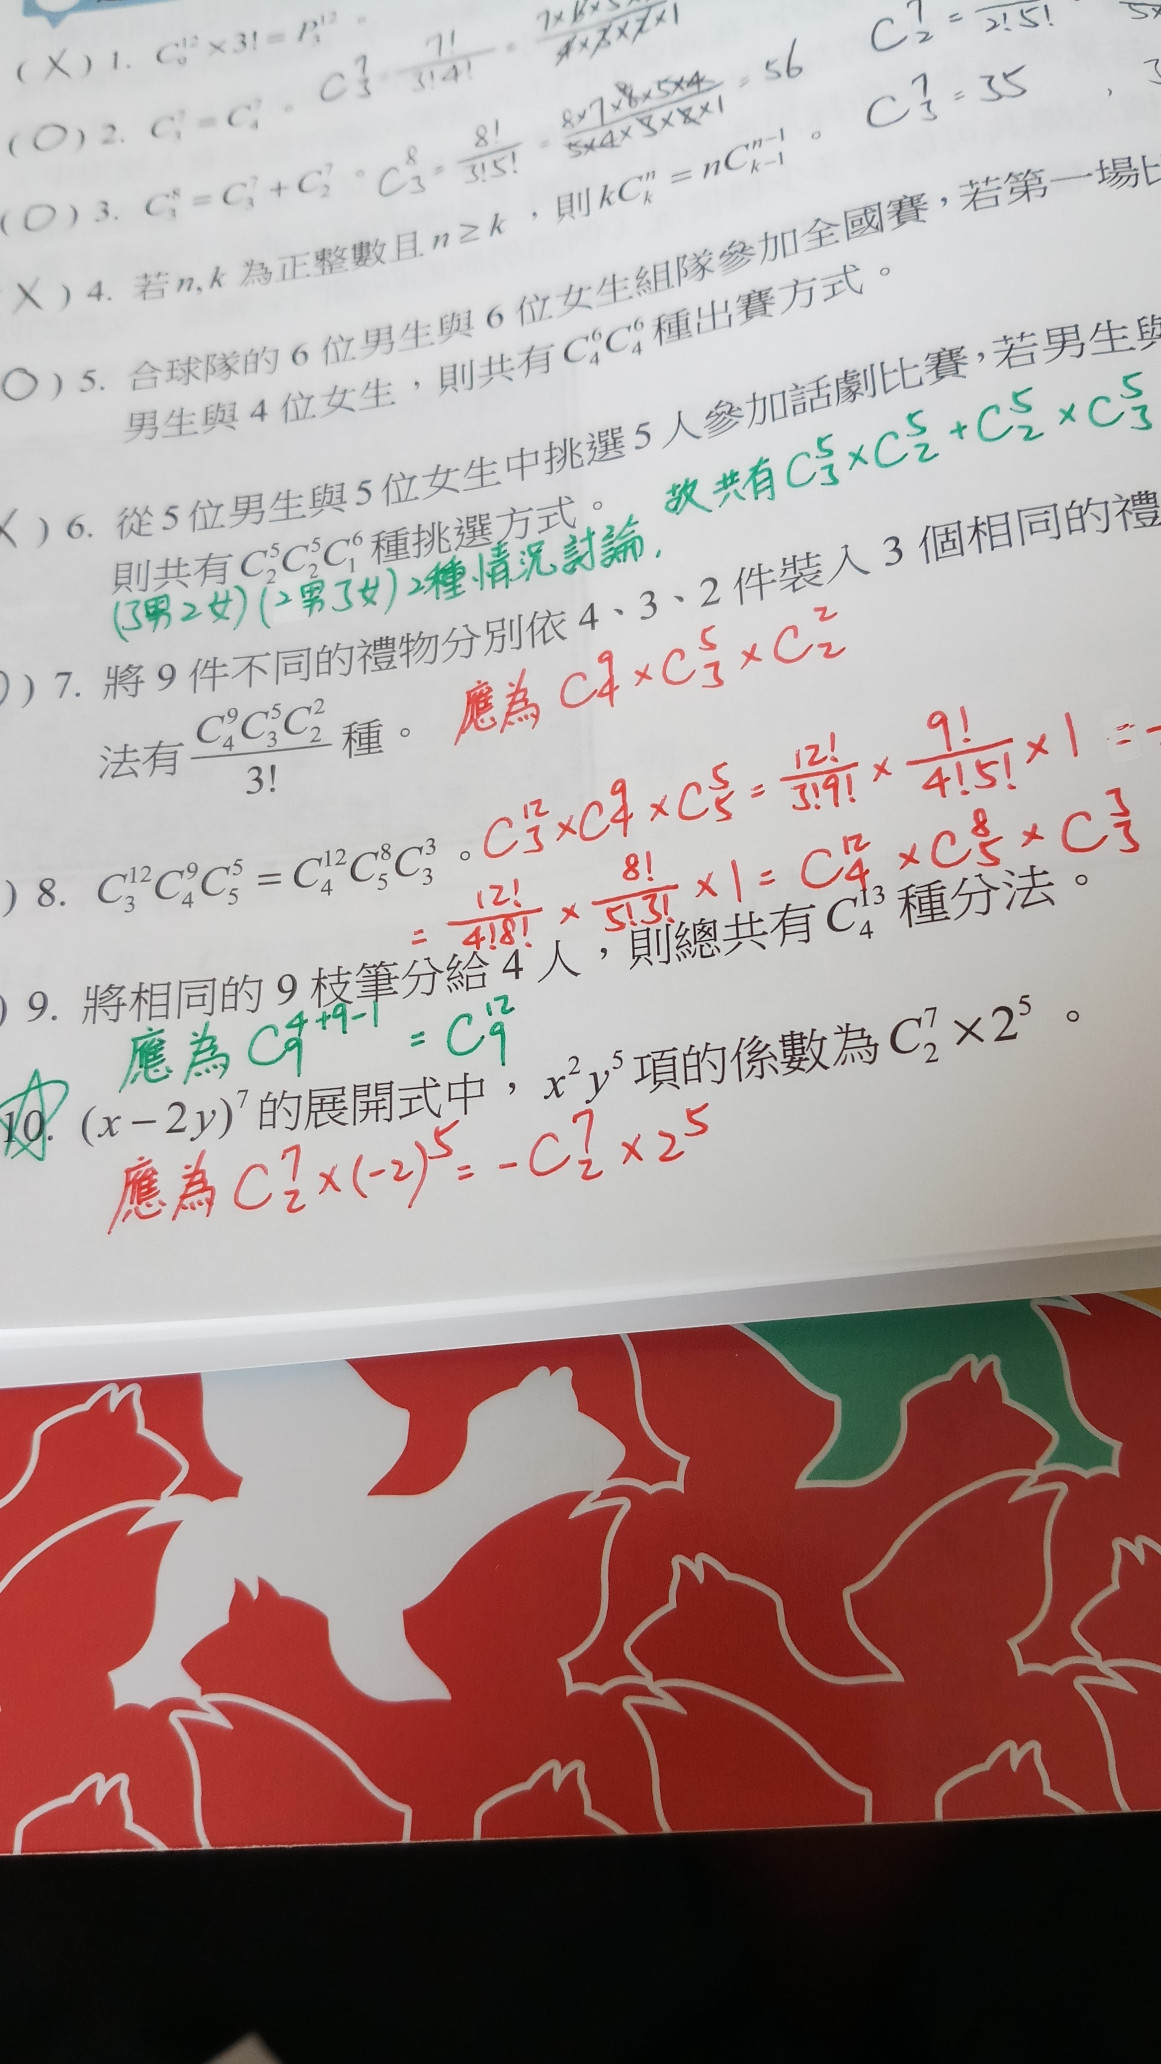 (X) 1. C₉¹² × 3! = P₃¹²。
(O) 2. C₃⁷ = C₄⁷。 C₃⁷ = 7!/3!4! =
C₂⁷ = 2!5!
(O) 3. C₃⁸ = C₃⁷ + C₂⁷。 C₃⁸ = 8!/3!5! = 8×7×6×5×4/5×4×3×2×1 = 56 C₃⁷ = 35
X) 4. 若 n, k 為正整數且 n ≥ k ,則 kCₖⁿ = nCₖ₋₁ⁿ⁻¹。
O) 5. 合球隊的 6 位男生與 6 位女生組隊參加全國賽,若第一場比
男生與 4 位女生,則共有 C₄⁶C₄⁶ 種出賽方式。
X) 6. 從 5 位男生與 5 位女生中挑選 5 人參加話劇比賽,若男生與
則共有 C₂⁵C₂⁵C₁⁶ 種挑選方式。 故共有 C₃⁵×C₂⁵+C₂⁵×C₃⁵
(3男2女)(2男3女)2種情況討論,
) 7. 將 9 件不同的禮物分別依 4、3、2 件裝入 3 個相同的禮
法有 C₄⁹C₃⁵C₂²/3! 種。 應為 C₄⁹×C₃⁵×C₂²
) 8. C₃¹²C₄⁹C₅⁵ = C₄¹²C₅⁸C₃³。 C₃¹²×C₄⁹×C₅⁵ = 12!/3!9! × 9!/4!5! × 1 =
= 12!/4!8! × 8!/5!3! × 1 = C₄¹² × C₅⁸ × C₃³
) 9. 將相同的 9 枝筆分給 4 人,則總共有 C₄¹³ 種分法。
應為 C₉⁴⁺⁹⁻¹ = C₉¹²
10. (x − 2y)⁷ 的展開式中, x²y⁵ 項的係數為 C₂⁷ × 2⁵ 。
應為 C₂⁷×(-2)⁵ = -C₂⁷×2⁵